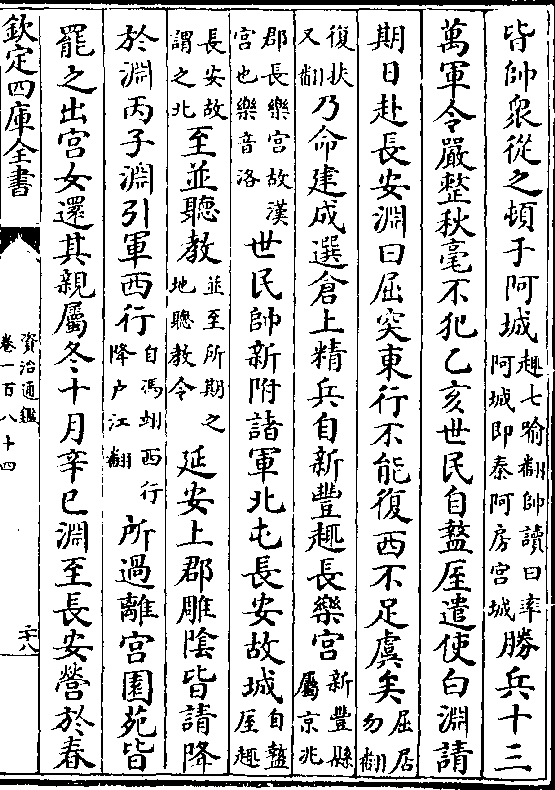 皆帥衆從之頓于阿城趣七喻翻帥讀曰率阿城即秦阿房宫城勝兵十三
萬軍令嚴整秋毫不犯乙亥世民自盩厔遣使白淵請
期日赴長安淵曰屈突東行不能復西不足虞矣屈居勿翻
復扶又翻乃命建成選倉上精兵自新豐趣長樂宫新豐縣屬京兆
郡長樂宫故漢宫也樂音洛世民帥新附諸軍北屯長安故城自盩厔趣
長安故謂之北至並聽教並至所期之地聽教令延安上郡雕隂皆請降
於淵丙子淵引軍西行自馮翊西行降户江翻所過離宫園苑皆
罷之出宫女還其親屬冬十月辛巳淵至長安營於春
欽定四庫全書
資治通鑑
卷一百八十四
二十八